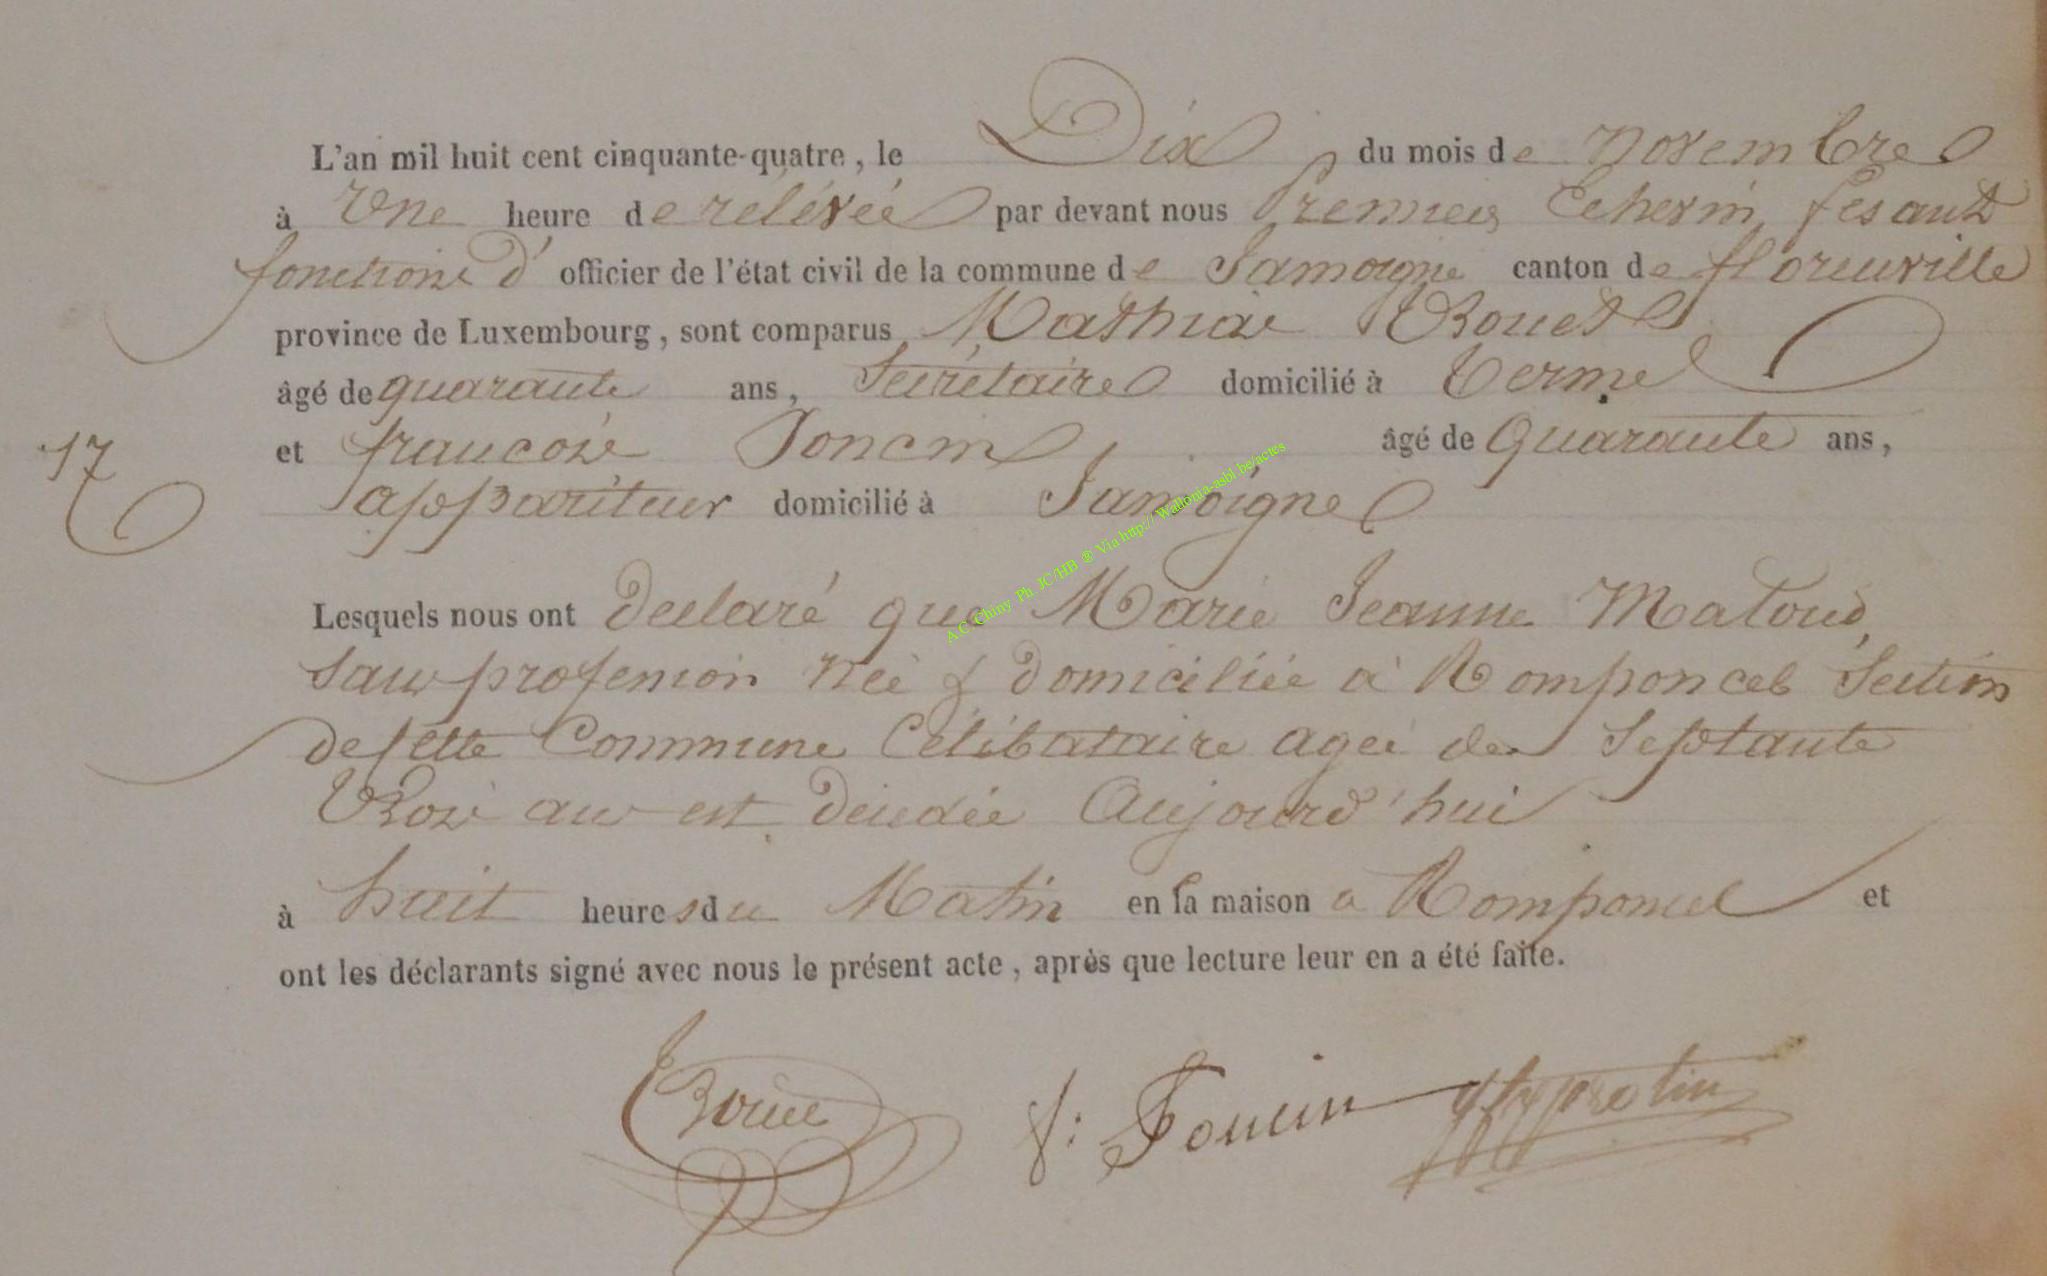 L'an mil huit cent cinquante-quatre, le Dix du mois de novembre
à Une heure de rélévée par devant nous Premier Echevin fesant
fonctions d' officier de l'état civil de la commune de Jamoigne canton de florenville
province de Luxembourg, sont comparus Mathias
âgé de quarante ans, Secrétaire domicilié à Terme
et francois Poncin âgé de Quarante ans,
17
appariteur domicilié à Jamoigne
Lesquels nous ont declaré que Marie Jeanne
sans profession née & domiciliée à Romponcel Section
de cette Commune Célibataire agée de Septante
Trois ans est décédée Aujourd'hui
à huit heures du Matin en sa maison a Romponcel et
ont les déclarants signé avec nous le présent acte, après que lecture leur en a été faite.
f: Poncin
A.C. Chiny Ph. JC/HB @ Via http:// Wallonia-asbl be/actes